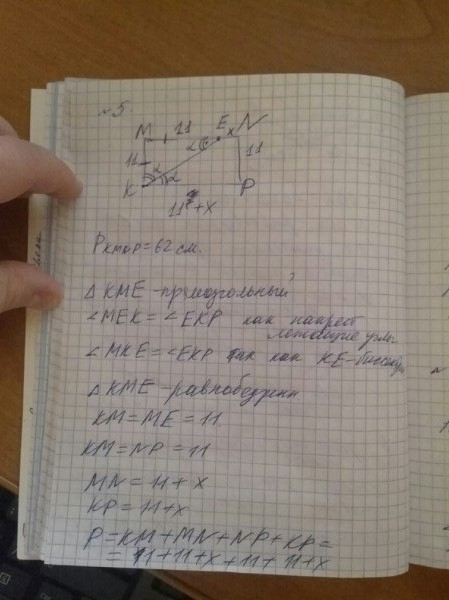 №5
M 11 E x N
11 α α 11
K α P
11 + x
P KMNP = 62 см.
Δ KME - прямоугольный
∠MEK = ∠EKP как накрест
лежащие углы
∠MKE = ∠EKP так как KE-биссектр
Δ KME - равнобедрен
KM = ME = 11
KM = NP = 11
MN = 11 + x
KP = 11 + x
P = KM + MN + NP + KP =
= 11 + 11 + x + 11 + 11 + x